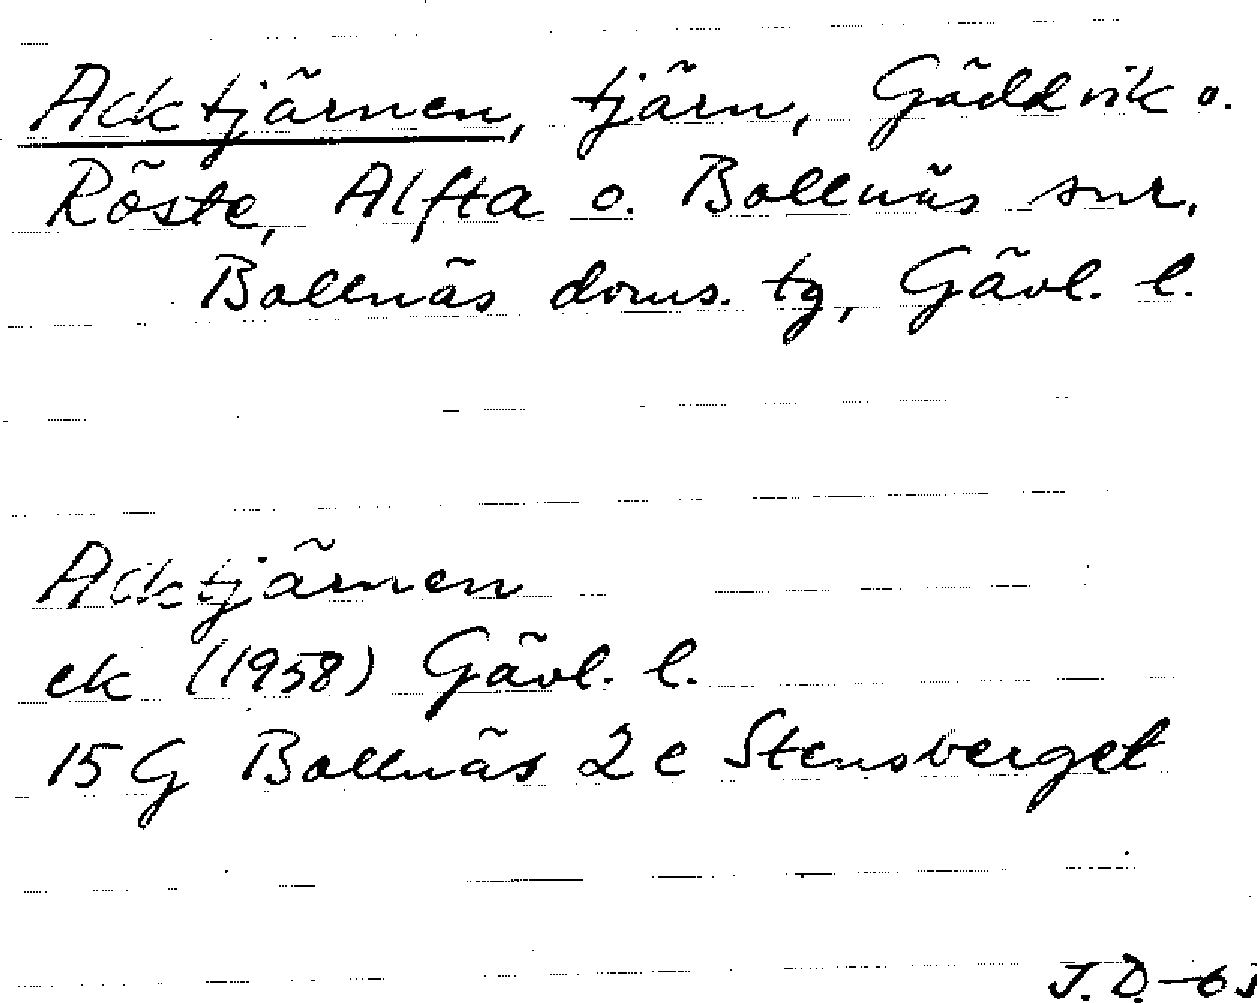 Acktjärnen, tjärn, Gäddvik o.
Röste, Alfta o. Bollnäs snr.
Bollnäs doms. tg, Gävl. l.
Acktjärnen
ek (1958) Gävl. l.
15 G Bollnäs 2 c Stensberget
J. D.